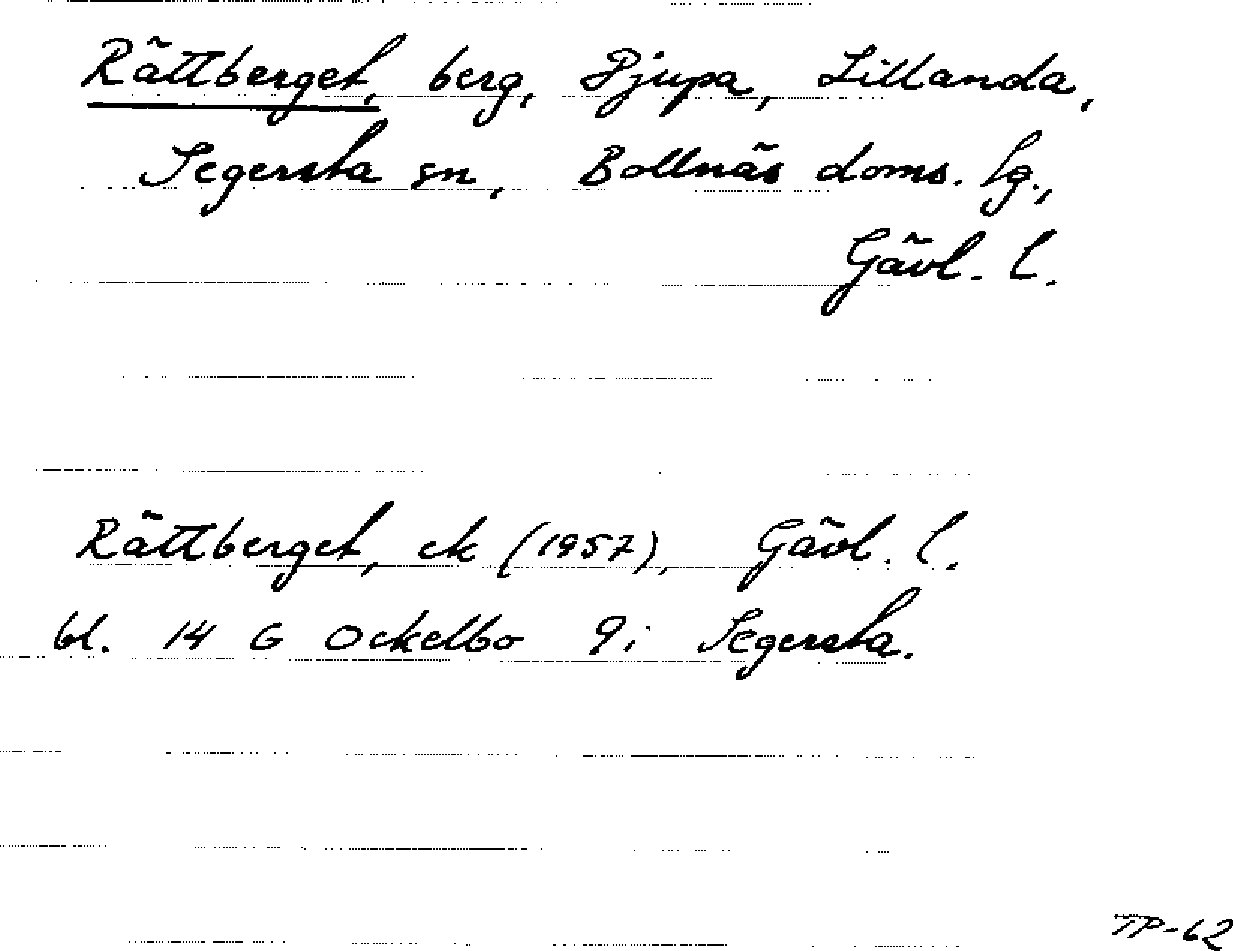 Rättberget, berg, Djupa, Lillanda,
Segersta sn, Bollnäs doms. lg.,
Gävl. l.
Rättberget, ek (1957), Gävl. l.
bl. 14 G Ockelbo 9i Segersta.
TP-62